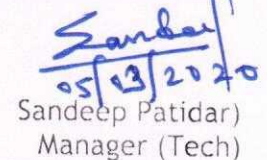 Sandeep
05/03/2020
Sandeep Patidar)
Manager (Tech)